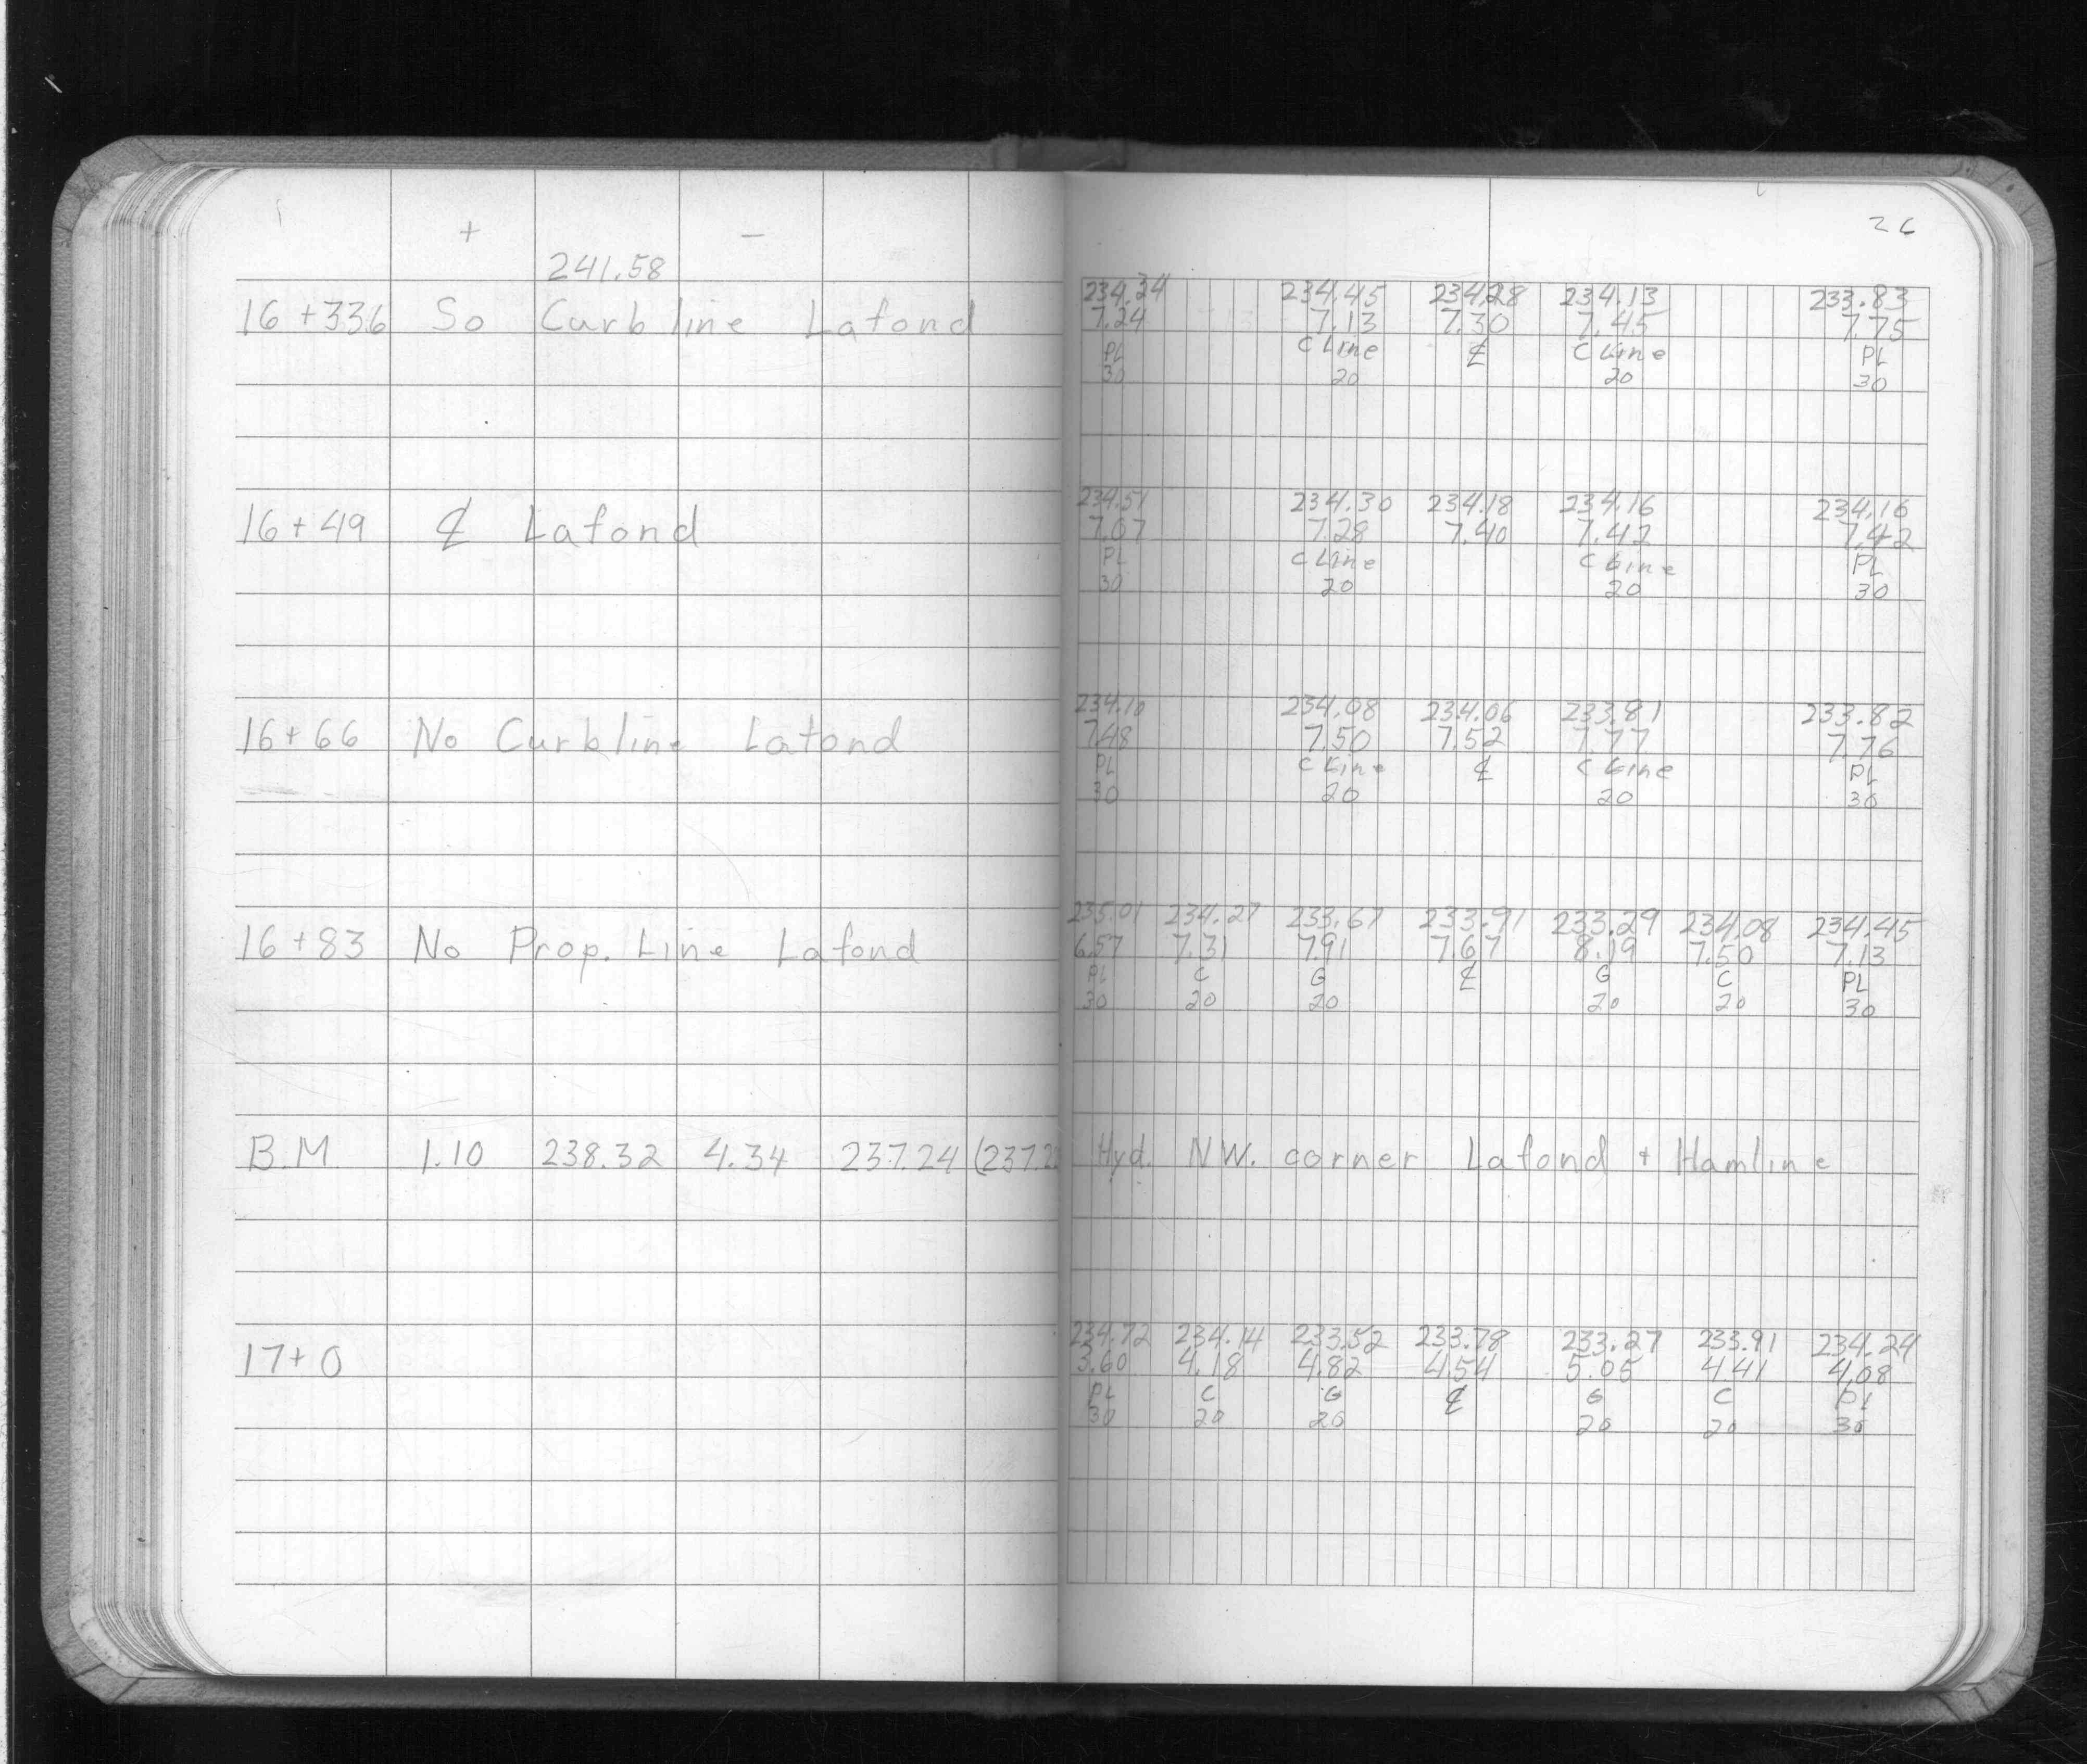 26
+ −
241.58
16+336 So Curb line Lafond
234.34 234.45 234.28 234.13 233.83
7.24 7.13 7.30 7.45 7.75
PL C Line ℄ C Line PL
30 20 20 30
16+49 ℄ Lafond
234.51 234.30 234.18 234.16 234.16
7.07 7.28 7.40 7.42 7.42
PL C Line C Line PL
30 20 20 30
16+66 No Curbline Lafond
234.10 234.08 234.06 233.81 233.82
7.48 7.50 7.52 7.77 7.76
PL C Line ℄ C Line PL
30 20 20 30
16+83 No Prop. Line Lafond
235.01 234.27 233.67 233.91 233.29 234.08 234.45
6.57 7.31 7.91 7.67 8.19 7.50 7.13
PL C G ℄ G C PL
30 20 20 20 20 30
B.M 1.10 238.32 4.34 237.24 (237.22 Hyd. NW. corner Lafond + Hamline
17+0
234.72 234.14 233.52 233.78 233.27 233.91 234.24
3.60 4.18 4.82 4.54 5.05 4.41 4.08
PL C G ℄ G C PL
30 20 20 20 20 30